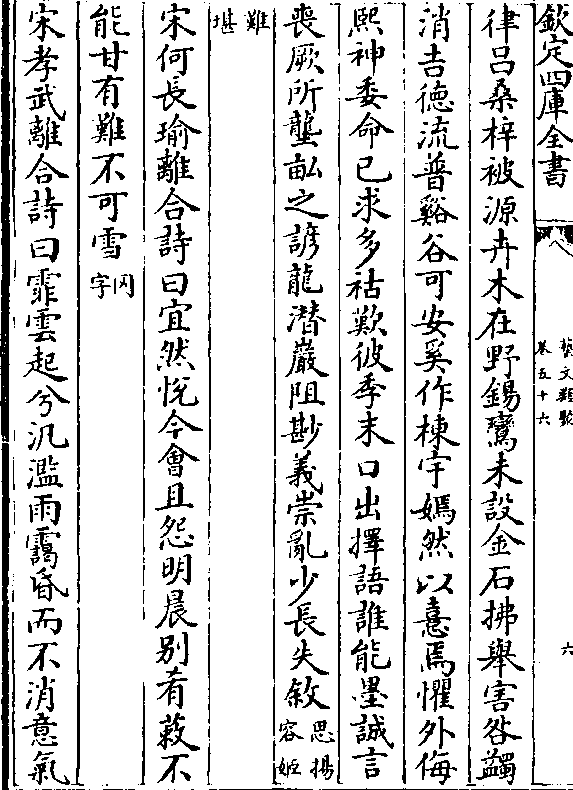 欽定四庫全書
藝文類聚
卷五十六
六
律呂桑梓被源卉木在野錫鸞未設金石拂舉害咎蠲
消吉德流普谿谷可安奚作棟宇嫣然以憙焉懼外侮
熙神委命已求多祜歎彼季末口出擇語誰能墨誠言
喪厥所壟畝之諺龍潛巖阻尠義崇亂少長失敘 思楊容姬
難堪
宋何長瑜離合詩曰宜然悅今會且怨明晨别肴蔌不
能甘有難不可雪 冈字
宋孝武離合詩曰霏雲起兮汎濫雨靄昏而不消意氣